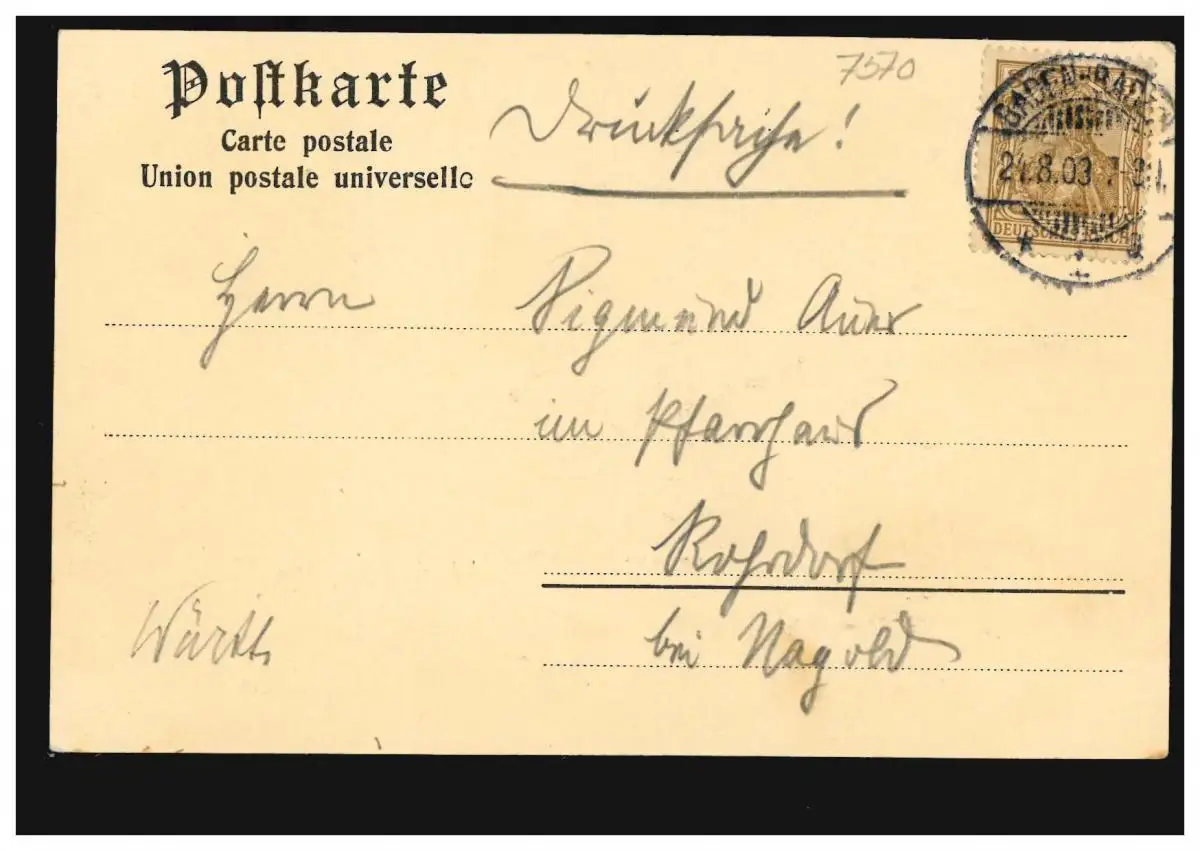 Postkarte
Carte postale
Union postale universelle
Drucksache!
7570
BADEN-BADEN
24.8.03
DEUTSCHES REICH
Herrn Sigmund Auer
im Pfarrhaus
Rohrdorf
bei Nagold
Württ.